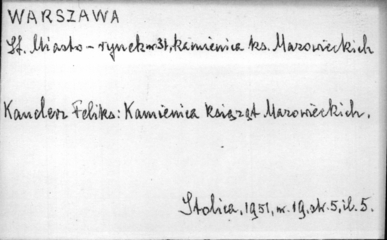 WARSZAWA
St. Miasto – rynek nr 31, kamienica ks. Mazowieckich
Kanclerz Feliks: Kamienica książąt Mazowieckich.
Stolica, 1951, nr. 19, str. 5, il. 5.